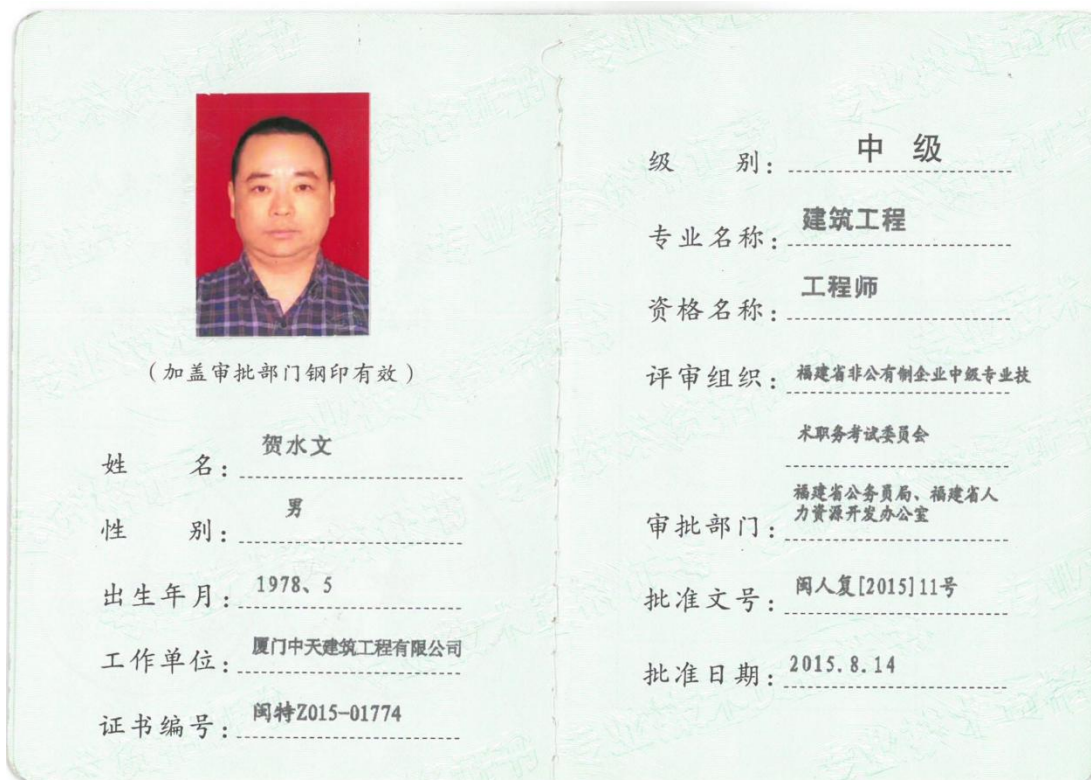 (加盖审批部门钢印有效)
姓 名: 贺水文
性 别: 男
出生年月: 1978、5
工作单位: 厦门中天建筑工程有限公司
证书编号: 闽特Z015-01774
级 别: 中 级
专业名称: 建筑工程
资格名称: 工程师
评审组织: 福建省非公有制企业中级专业技
术职务考试委员会
审批部门: 福建省公务员局、福建省人
力资源开发办公室
批准文号: 闽人复[2015]11号
批准日期: 2015.8.14